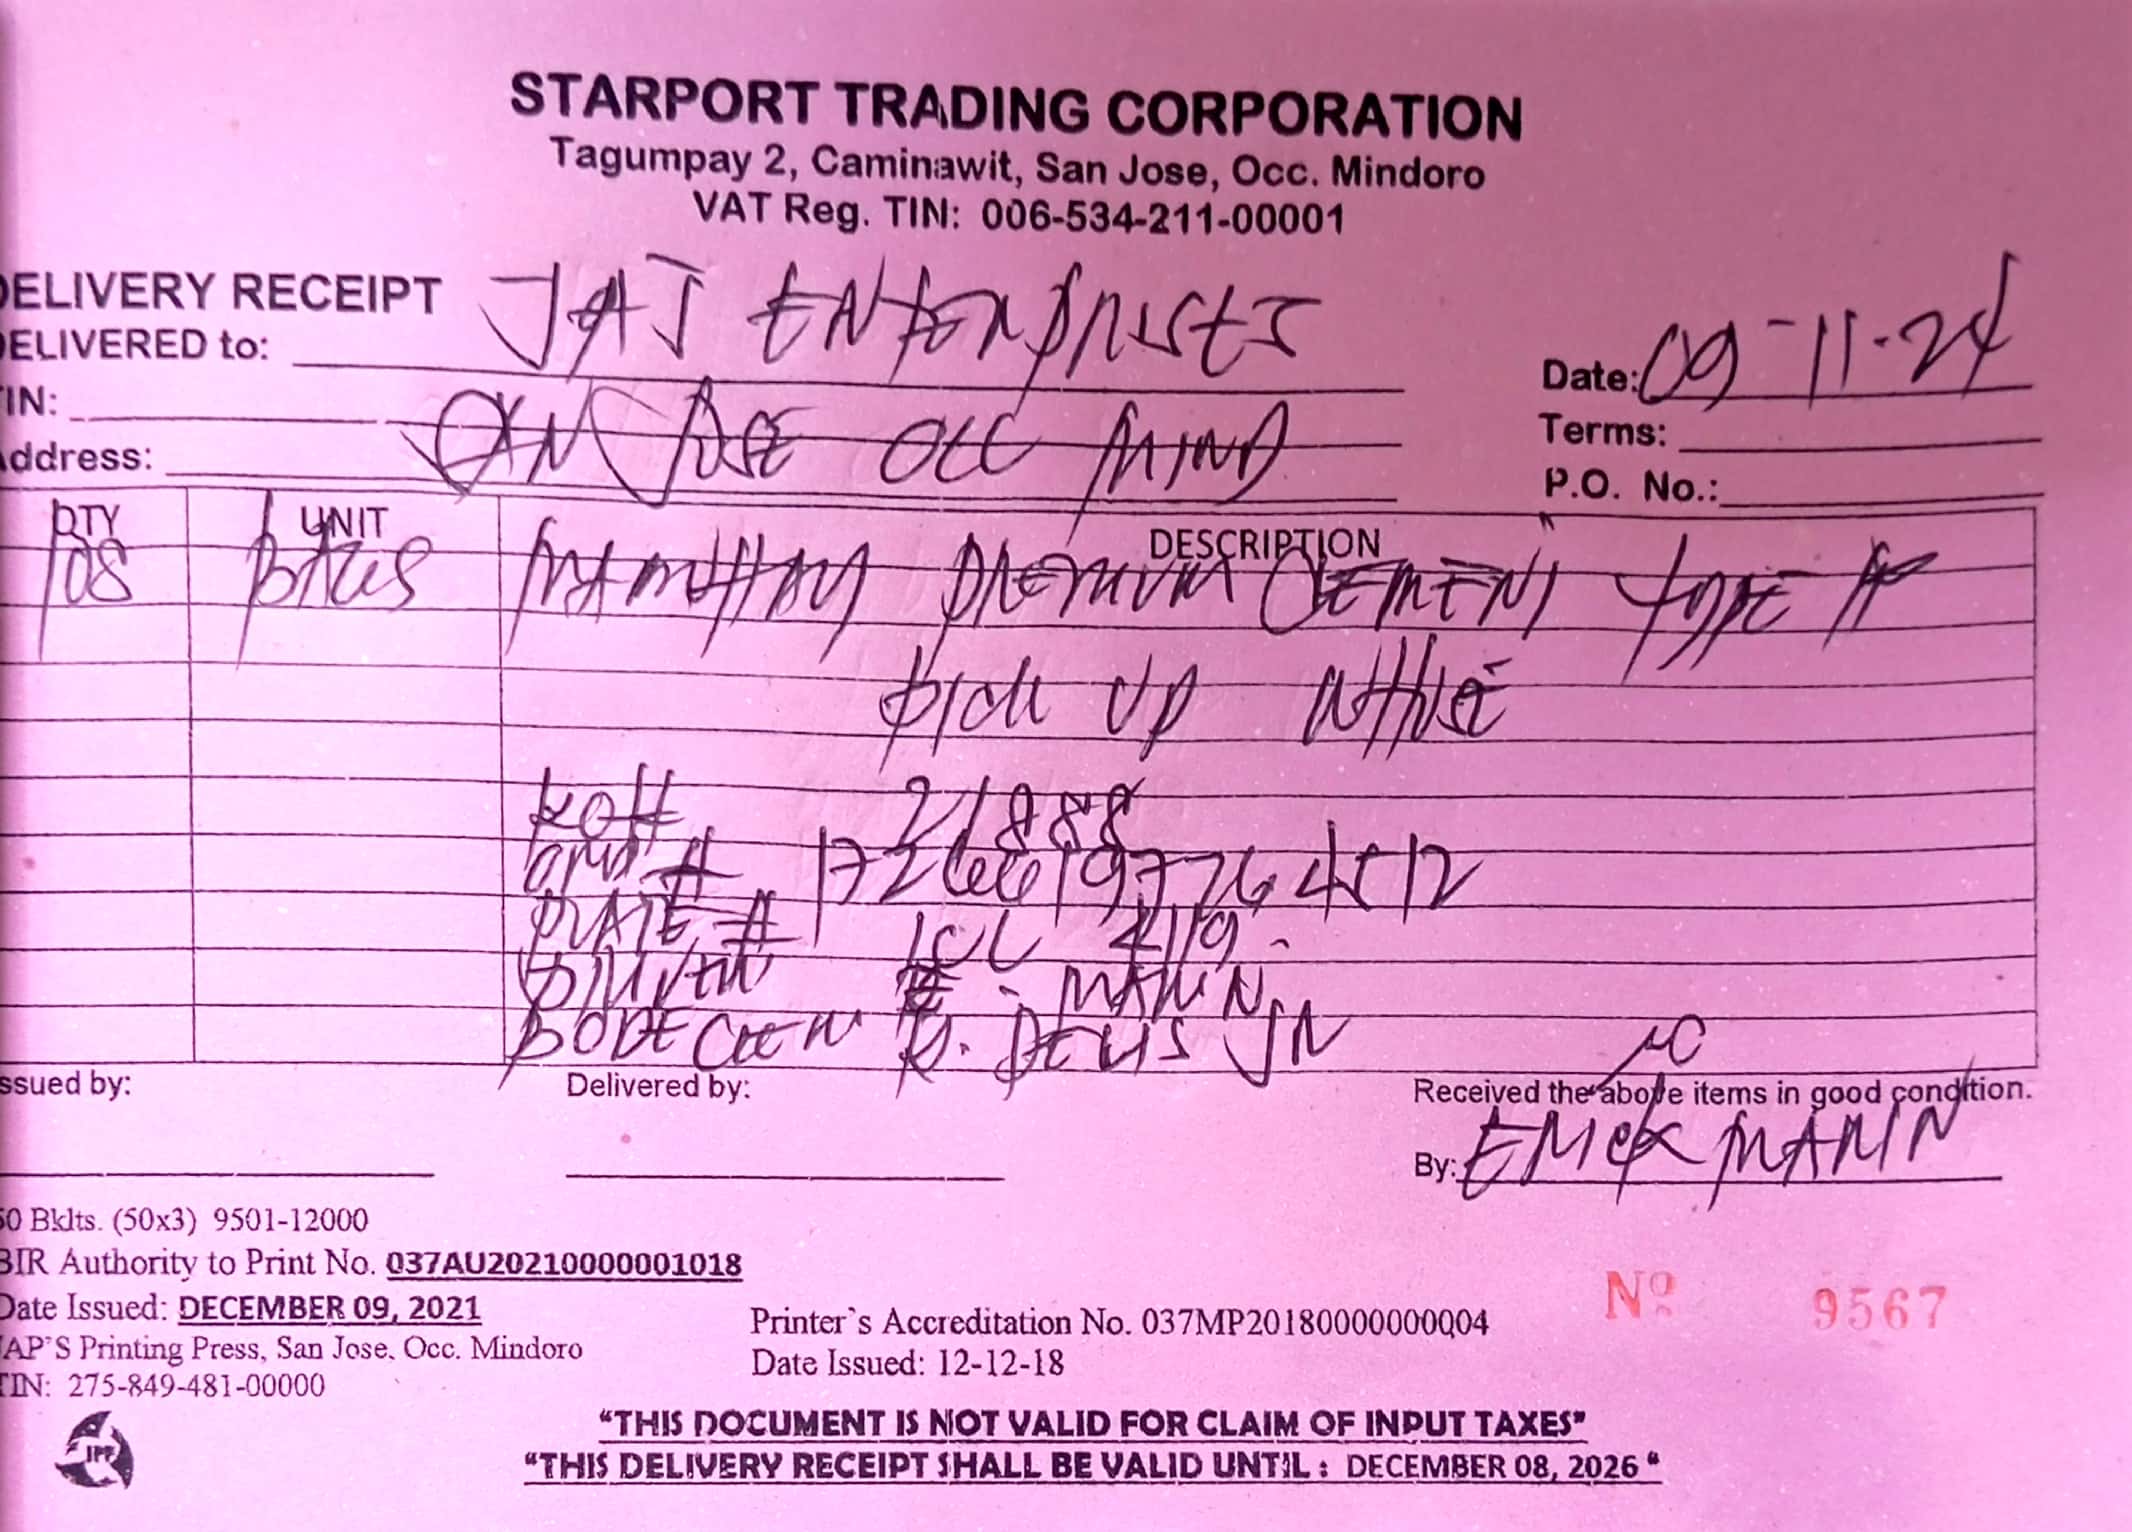 STARPORT TRADING CORPORATION
Tagumpay 2, Caminawit, San Jose, Occ. Mindoro
VAT Reg. TIN: 006-534-211-00001
DELIVERY RECEIPT
DELIVERED to: JAJ ENTERPRISES
Date: 09-11-24
TIN:
Terms:
Address: SAN JOSE OCC MIND
P.O. No.:
QTY UNIT DESCRIPTION
108 BAGS PREMIUM CEMENT TYPE
PICK UP WHSE
# 21888
#
PLATE #
DRIVER E. MARIN
BODEGERO
Issued by:
Delivered by:
Received the above items in good condition.
By: MARIN
50 Bklts. (50x3) 9501-12000
BIR Authority to Print No. 037AU20210000001018
Date Issued: DECEMBER 09, 2021
JAP'S Printing Press, San Jose, Occ. Mindoro
TIN: 275-849-481-00000
Printer`s Accreditation No. 037MP20180000000004
Date Issued: 12-12-18
Nº 9567
JPP
"THIS DOCUMENT IS NOT VALID FOR CLAIM OF INPUT TAXES"
"THIS DELIVERY RECEIPT SHALL BE VALID UNTIL : DECEMBER 08, 2026 "